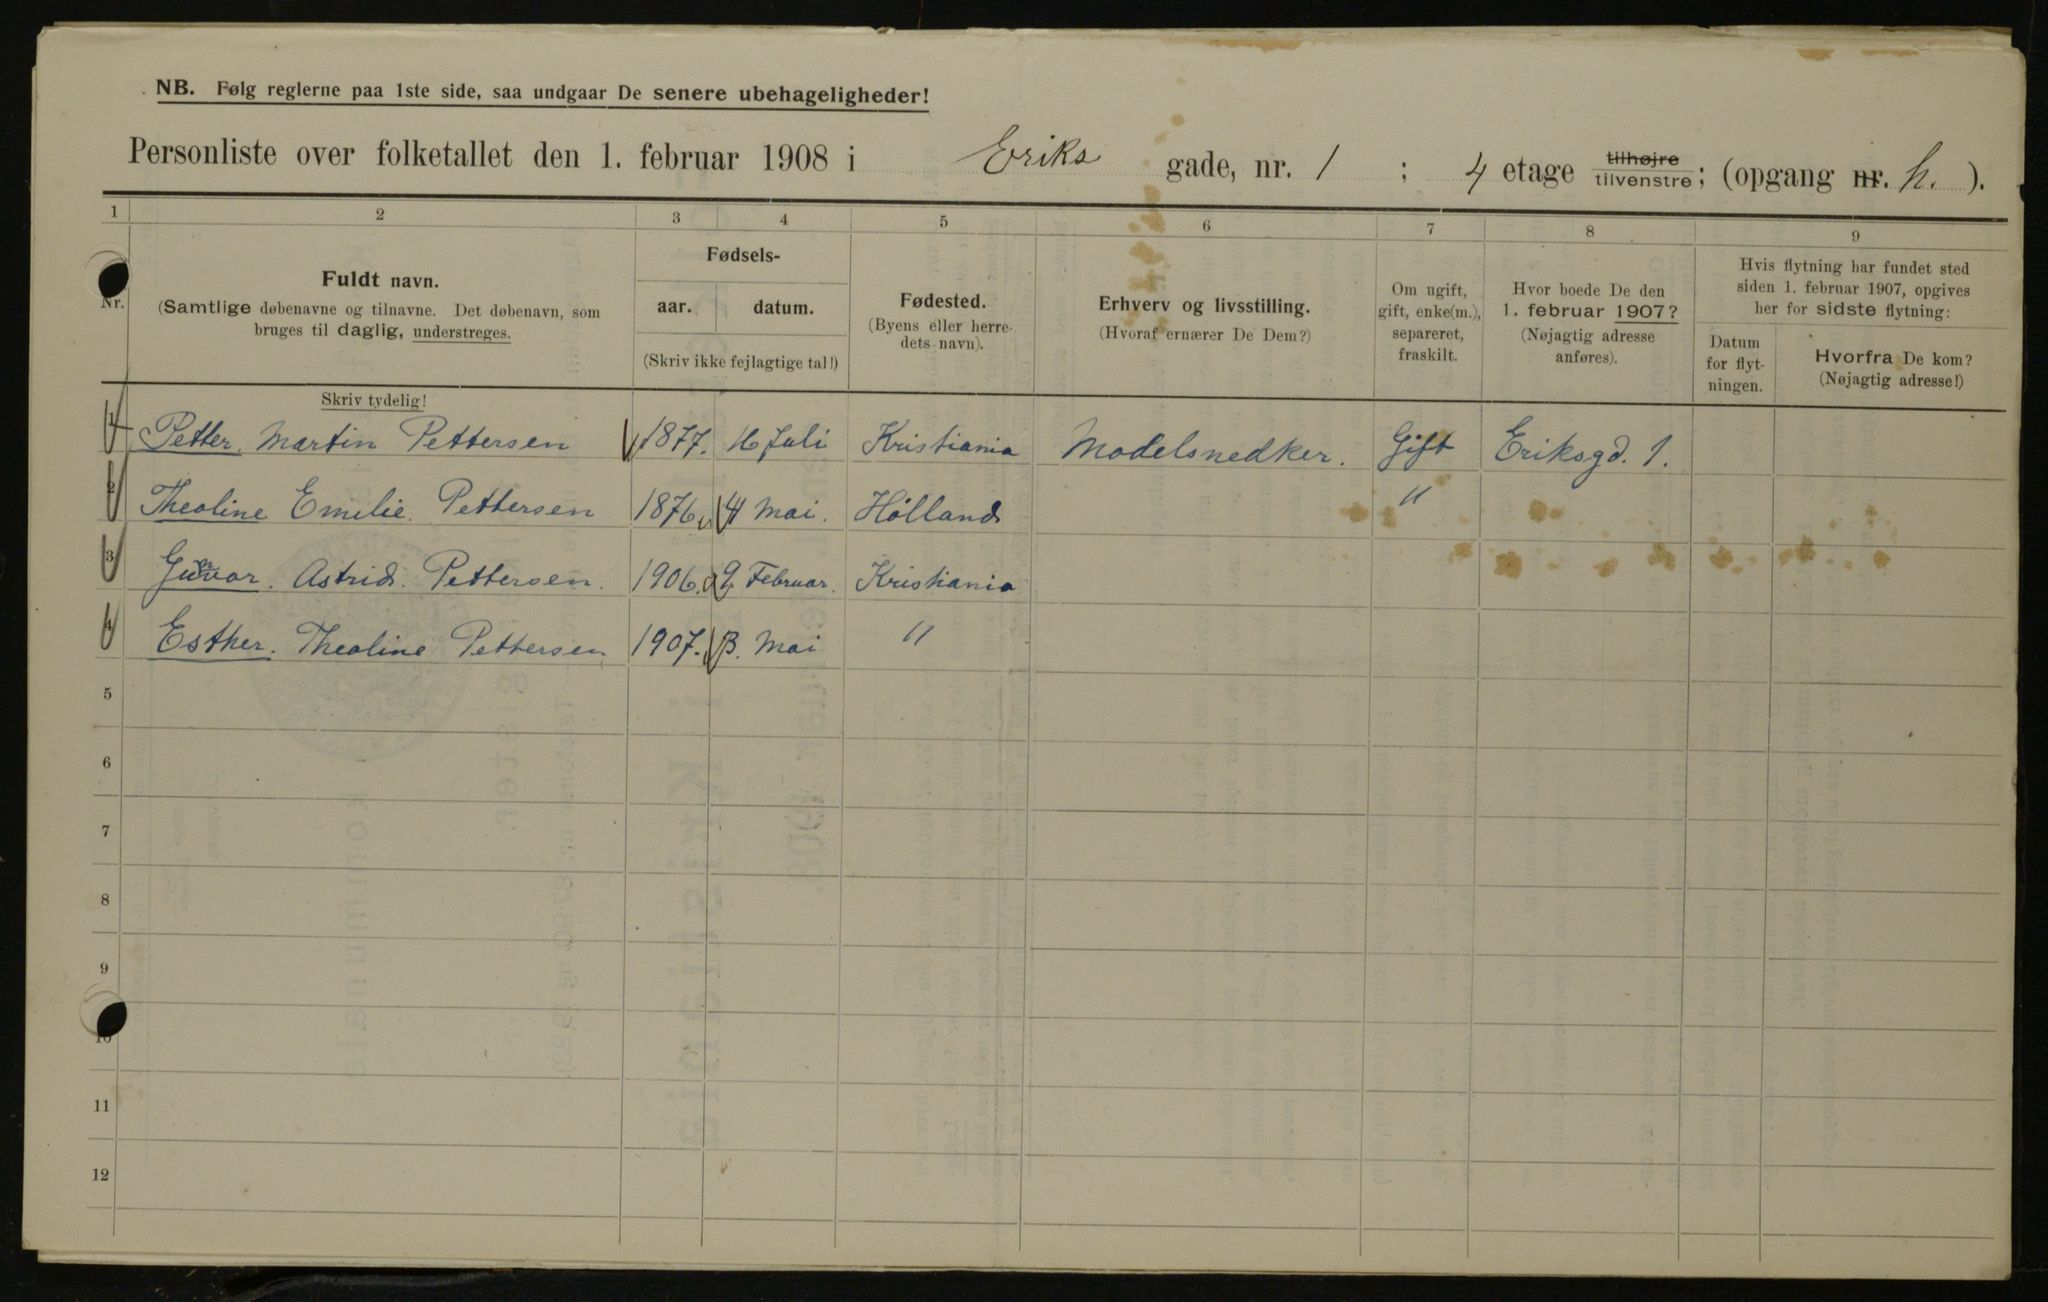 NB. Følg reglerne paa 1ste side, saa undgaar De senere ubehageligheder!
Personliste over folketallet den 1. februar 1908 i Eriks gade, nr. 1 ; 4 etage tilhøjre tilvenstre; (opgang nr. h. ).
1 2 3 4 5 6 7 8 9
Nr.
Fuldt navn.
(Samtlige døbenavne og tilnavne. Det døbenavn, som
bruges til daglig, understreges.
Skriv tydelig!
Fødsels-
aar. datum.
(Skriv ikke fejlagtige tal!)
Fødested.
(Byens eller herre-
dets navn).
Erhverv og livsstilling.
(Hvoraf ernærer De Dem?)
Om ugift,
gift, enke(m.),
separeret,
fraskilt.
Hvor boede De den
1. februar 1907?
(Nøjagtig adresse
anføres).
Hvis flytning har fundet sted
siden 1. februar 1907, opgives
her for sidste flytning:
Datum
for flyt-
ningen.
Hvorfra De kom?
(Nøjagtig adresse!)
1 Petter Martin Pettersen 1877. 16 Juli Kristiania Modelsnedker. Gift Eriksgd. 1.
2 Theoline Emilie. Pettersen 1876 Mai. Hölland "
3 Astrid. Pettersen. 1906. 9 Februar. Kristiania
4 Esther. Theoline Pettersen 1907. 3. Mai "
5
6
7
8
9
10
11
12